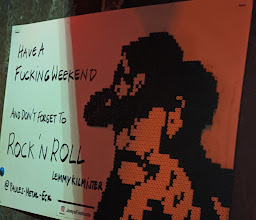 HAVE A
FUCKING WEEKEND
AND DON'T FORGET TO
ROCK 'N ROLL
LEMMY KILMISTER
@ PAULES-METAL-ECK